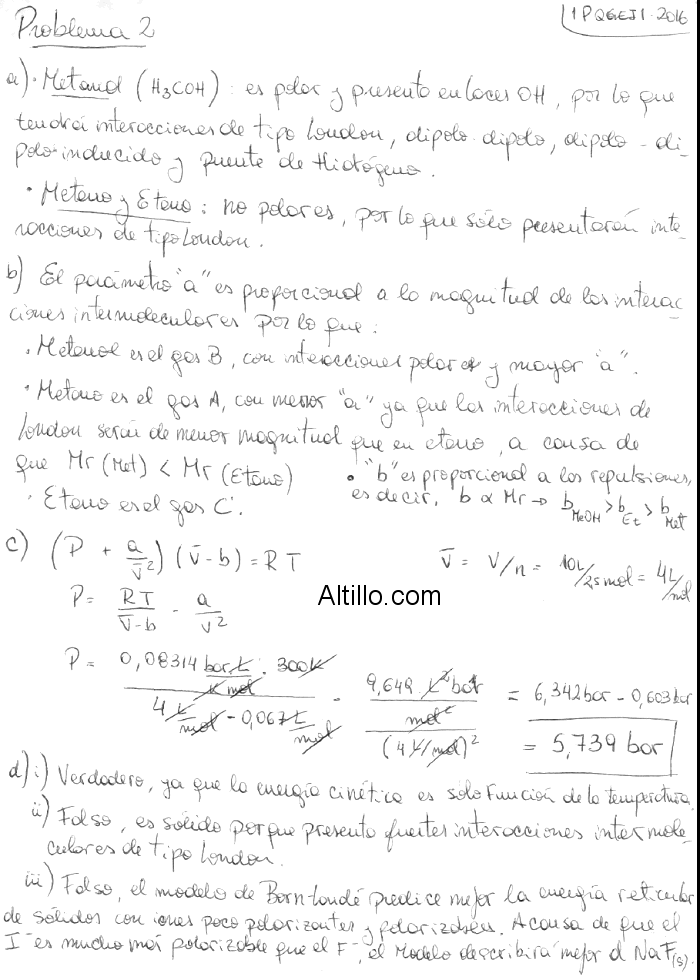 Problema 2
1PQGEJ1-2016
a) · Metanol (H₃COH) : es polar y presenta enlaces OH, por lo que
tendrá interacciones de tipo London, dipolo-dipolo, dipolo - di-
polo-inducido y puente de Hidrógeno.
· Metano y Etano : no polares, por lo que sólo presentarán inte-
racciones de tipo London.
b) El parámetro "a" es proporcional a la magnitud de las interac-
ciones intermoleculares por lo que :
· Metanol es el gas B, con interacciones polares y mayor "a".
· Metano es el gas A, con menor "a" ya que las interacciones de
London serán de menor magnitud que en etano, a causa de
que Mr (Met) < Mr (Etano)
· Etano es el gas C.
• "b" es proporcional a las repulsiones,
es decir, b α Mr → b MeOH > b Et > b Met
c) (P + a/v̄²) (v̄ - b) = RT
v̄ = V/n = 10L/2,5mol = 4 L/mol
P = RT/(v̄-b) - a/v̄²
Altillo.com
P = (0,08314 bar.L/K mol . 300K)/(4 L/mol - 0,067 L/mol) - (9,649 L² bar/mol²)/(4 L/mol)² = 6,342 bar - 0,603 bar
= 5,739 bar
d) i) Verdadero, ya que la energía cinética es sólo función de la temperatura.
ii) Falso, es sólido porque presenta fuertes interacciones intermole-
culares de tipo London.
iii) Falso, el modelo de Born-Landé predice mejor la energía reticular
de sólidos con iones poco polarizantes y polarizables. A causa de que el
I⁻ es mucho más polarizable que el F⁻, el modelo describirá mejor el NaF(s).